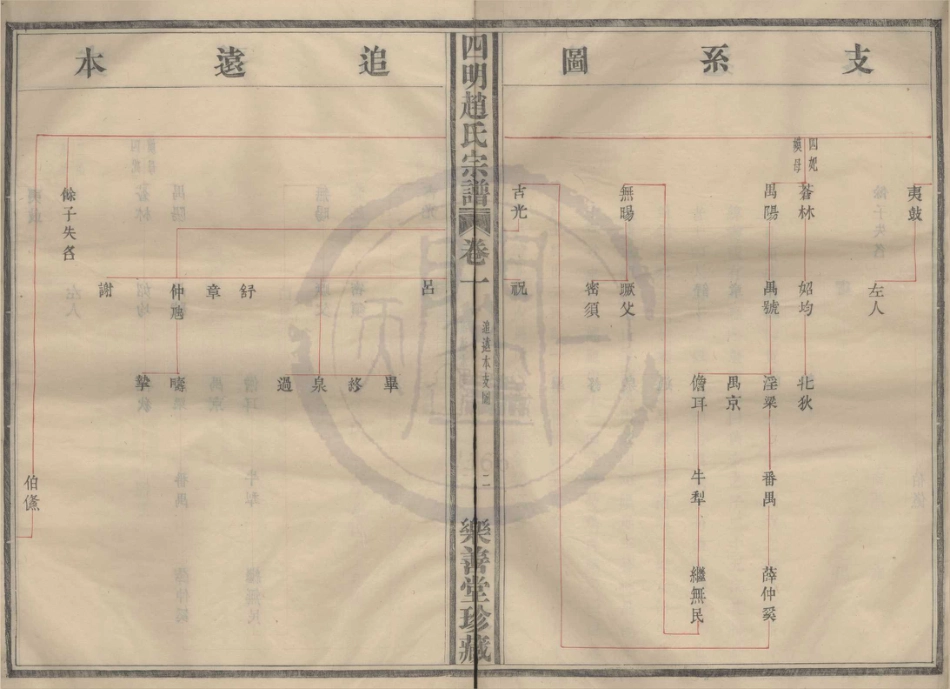 支系圖
夷鼓
左人
四妃
嫫母
蒼林
始均
北狄
禺陽
禺號
淫梁
番禺
薛仲奚
禺京
儋耳
牛犁
繼無民
無暘
蹶父
密須
吉光
祝
四明趙氏宗譜
卷一
追遠本支圖
二
樂善堂珍藏
追遠本
呂
畢
終
泉
過
舒
章
仲虺
疇
摯
謝
餘子失名
伯儵